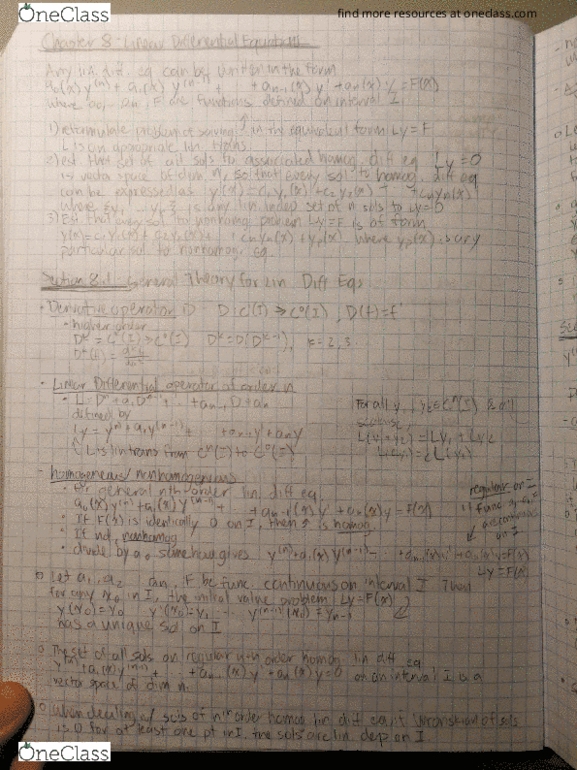 OneClass
find more resources at oneclass.com
Chapter 8 - Linear Differential Equations
Any lin. diff. eq can be written in the form
a₀(x) y⁽ⁿ⁾ + a₁(x) y⁽ⁿ⁻¹⁾ + + aₙ₋₁(x) y' + aₙ(x) y = F(x)
where a₀, aₙ, F are functions defined on interval I
1) reformulate problem of solving in the equivalent form Ly = F
L is an appropriate lin. trans.
2) est. that set of all sols to associated homog. diff eq Ly = 0
is vector space of dim n, so that every sol to homog. diff eq
can be expressed as y(x) = c₁y₁(x) + c₂y₂(x) + + cₙyₙ(x)
where {y₁, yₙ} is any lin. indep set of n sols to Ly = 0
3) Est that every sol to nonhomog. problem Ly = F is of form
y(x) = c₁y₁(x) + c₂y₂(x) + + cₙyₙ(x) + yₚ(x) where yₚ(x) is any
particular sol to nonhomog. eq.
Section 8.1 - General Theory for Lin. Diff Eqs
Derivative operator D D: C¹(I) → C⁰(I), D(f) = f'
higher order
Dᵏ = Cᵏ(I) → C⁰(I) Dᵏ = D(Dᵏ⁻¹), k = 2, 3
Linear Differential operator of order n
L = Dⁿ + a₁Dⁿ⁻¹ + + aₙ₋₁D + aₙ
defined by
Ly = y⁽ⁿ⁾ + a₁y⁽ⁿ⁻¹⁾ + + aₙ₋₁y' + aₙy
L is lin trans from Cⁿ(I) to C⁰(I)
For all y₁, y₂ ∈ Cⁿ(I) & all
scalars c,
L(y₁ + y₂) = Ly₁ + Ly₂
L(cy₁) = cL(y₁)
homogeneous/nonhomogeneous
general nth-order lin. diff eq
a₀(x) y⁽ⁿ⁾ + a₁(x) y⁽ⁿ⁻¹⁾ + + aₙ₋₁(x) y' + aₙ(x) y = F(x)
If F(x) is identically 0 on I, then is homog.
If not, nonhomog
divide by a₀ gives y⁽ⁿ⁾ + a₁(x) y⁽ⁿ⁻¹⁾ + + aₙ₋₁(x) y' + aₙ(x) y = F(x)
Ly = F(x)
regular on I
if func
continuous
on I
Let a₁, a₂ aₙ, F be func. continuous on interval I. Then
for any x₀ in I, the initial value problem Ly = F(x)
y(x₀) = y₀ y'(x₀) = y₁ y⁽ⁿ⁻¹⁾(x₀) = yₙ₋₁
has a unique sol on I
The set of all sols on regular nth order homog lin diff eq
y⁽ⁿ⁾ + a₁(x) y⁽ⁿ⁻¹⁾ + + aₙ₋₁(x) y' + aₙ(x) y = 0 on an interval I is a
vector space of dim n
When dealing w/ sols of nth order homog lin diff eq, if Wronskian of sols
is 0 for at least one pt in I, the sols are lin. dep on I
OneClass